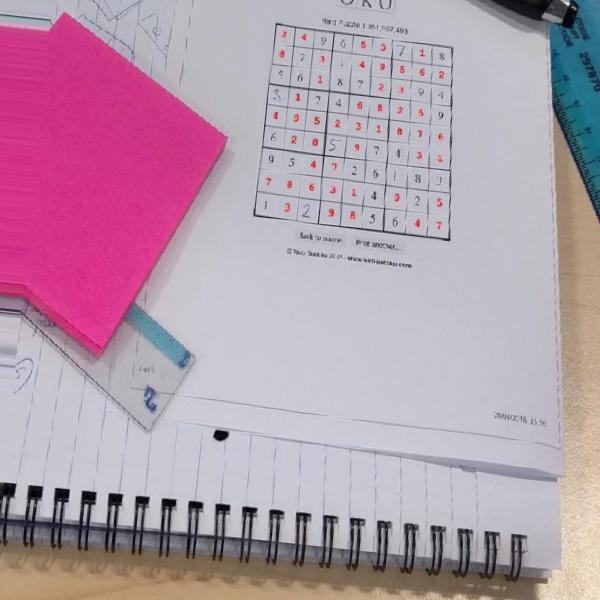 OKU
Hard Puzzle
2 4 9 6 5 3 7 1 8
8 7 3 1 4 9 5 6 2
5 6 1 8 7 2 3 9 4
3 1 7 4 6 8 2 5 9
4 9 5 2 3 1 8 7 6
6 2 8 5 9 7 4 3 1
9 5 4 7 2 6 1 8 3
7 8 6 3 1 4 9 2 5
1 3 2 9 8 5 6 4 7
Back to puzzle Print another...
© Web Sudoku - www.websudoku.com
297870